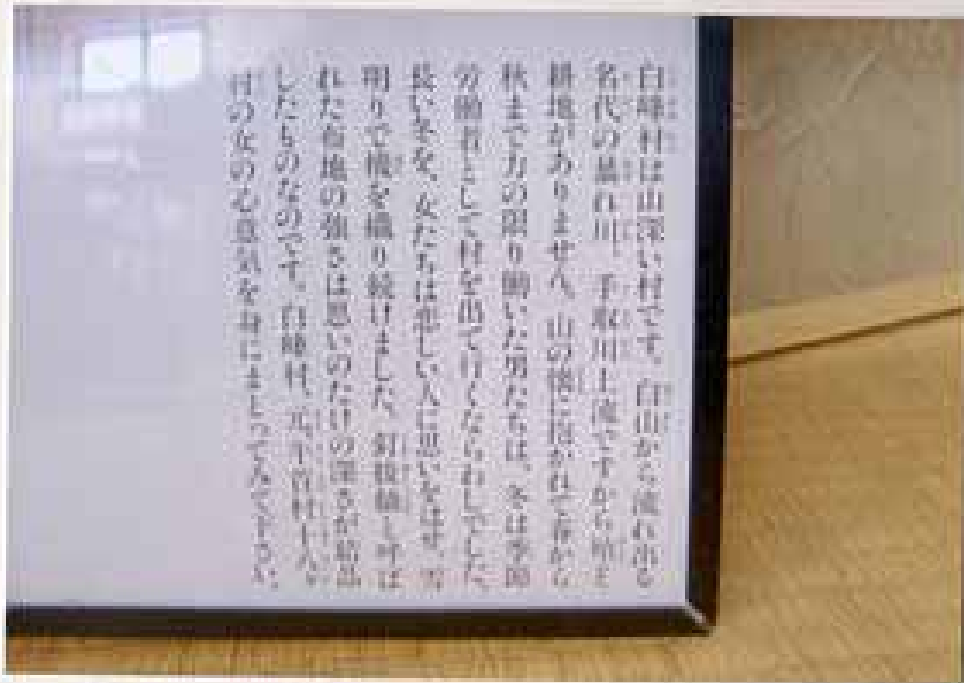 白峰村は山深い村です。白山から流れ出る
名代の暴れ川、手取川上流ですから
耕地がありません。山の懐に抱かれて春から
秋まで力の限り働いた男たちは、冬は季節
労働者として村を出て行くならわしでした。
長い冬を、女たちは恋しい人に思いをはせ、雪
明りで機を織り続けました。釘抜紬と呼ば
れた布地の強さは思いのたけの深さが結晶
したものなのです。白峰村、元
村の女の心意気を身にまとってみて下さい。